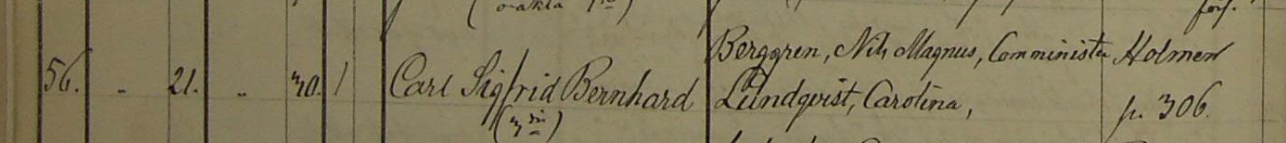 (oäkta
förs.
56. " 21. " 30. 1 Carl Sigfrid Bernhard Berggren, Nils Magnus, Comminister Holmen
Lundqvist, Carolina, p. 306.